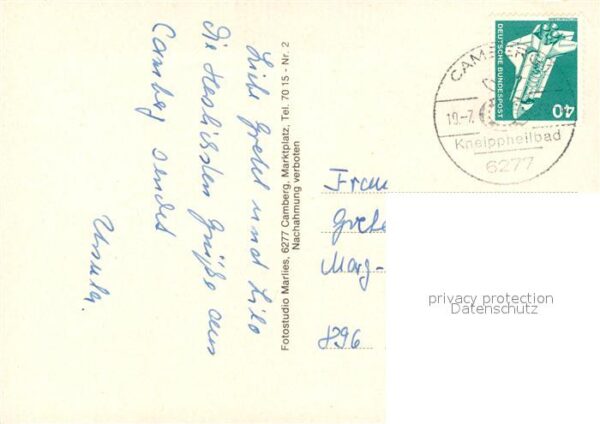 Liebe Gretel und Lilo
Die Herzlichsten Grüße aus
Camberg sendet
Ursula.
Fotostudio Marlies, 6277 Camberg, Marktplatz, Tel. 70 15 - Nr. 2
Nachahmung verboten
DEUTSCHE BUNDESPOST
40
CAMBER
19.-7.
Kneippheilbad
6277
Frau
Grete
Marg-
896
privacy protection
Datenschutz